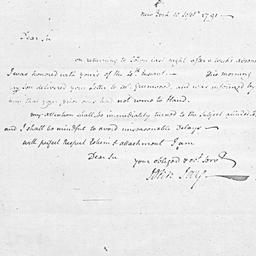 New York 10 Sept. 1791
Dear Sir
on returning to Town last night after a week's absence
I was honored with yours of the 4th Instant. This morning
my son delivered your Letter to Mr. Greenwood, and was informed by
him that your prior one had not come to Hand.
my attention shall be immediately turned to the Subject
and I shall be mindful to avoid unreasonable Delays—
with perfect Respect Esteem & attachment I am
Dear Sir your obliged & obt. Servt.
John Jay